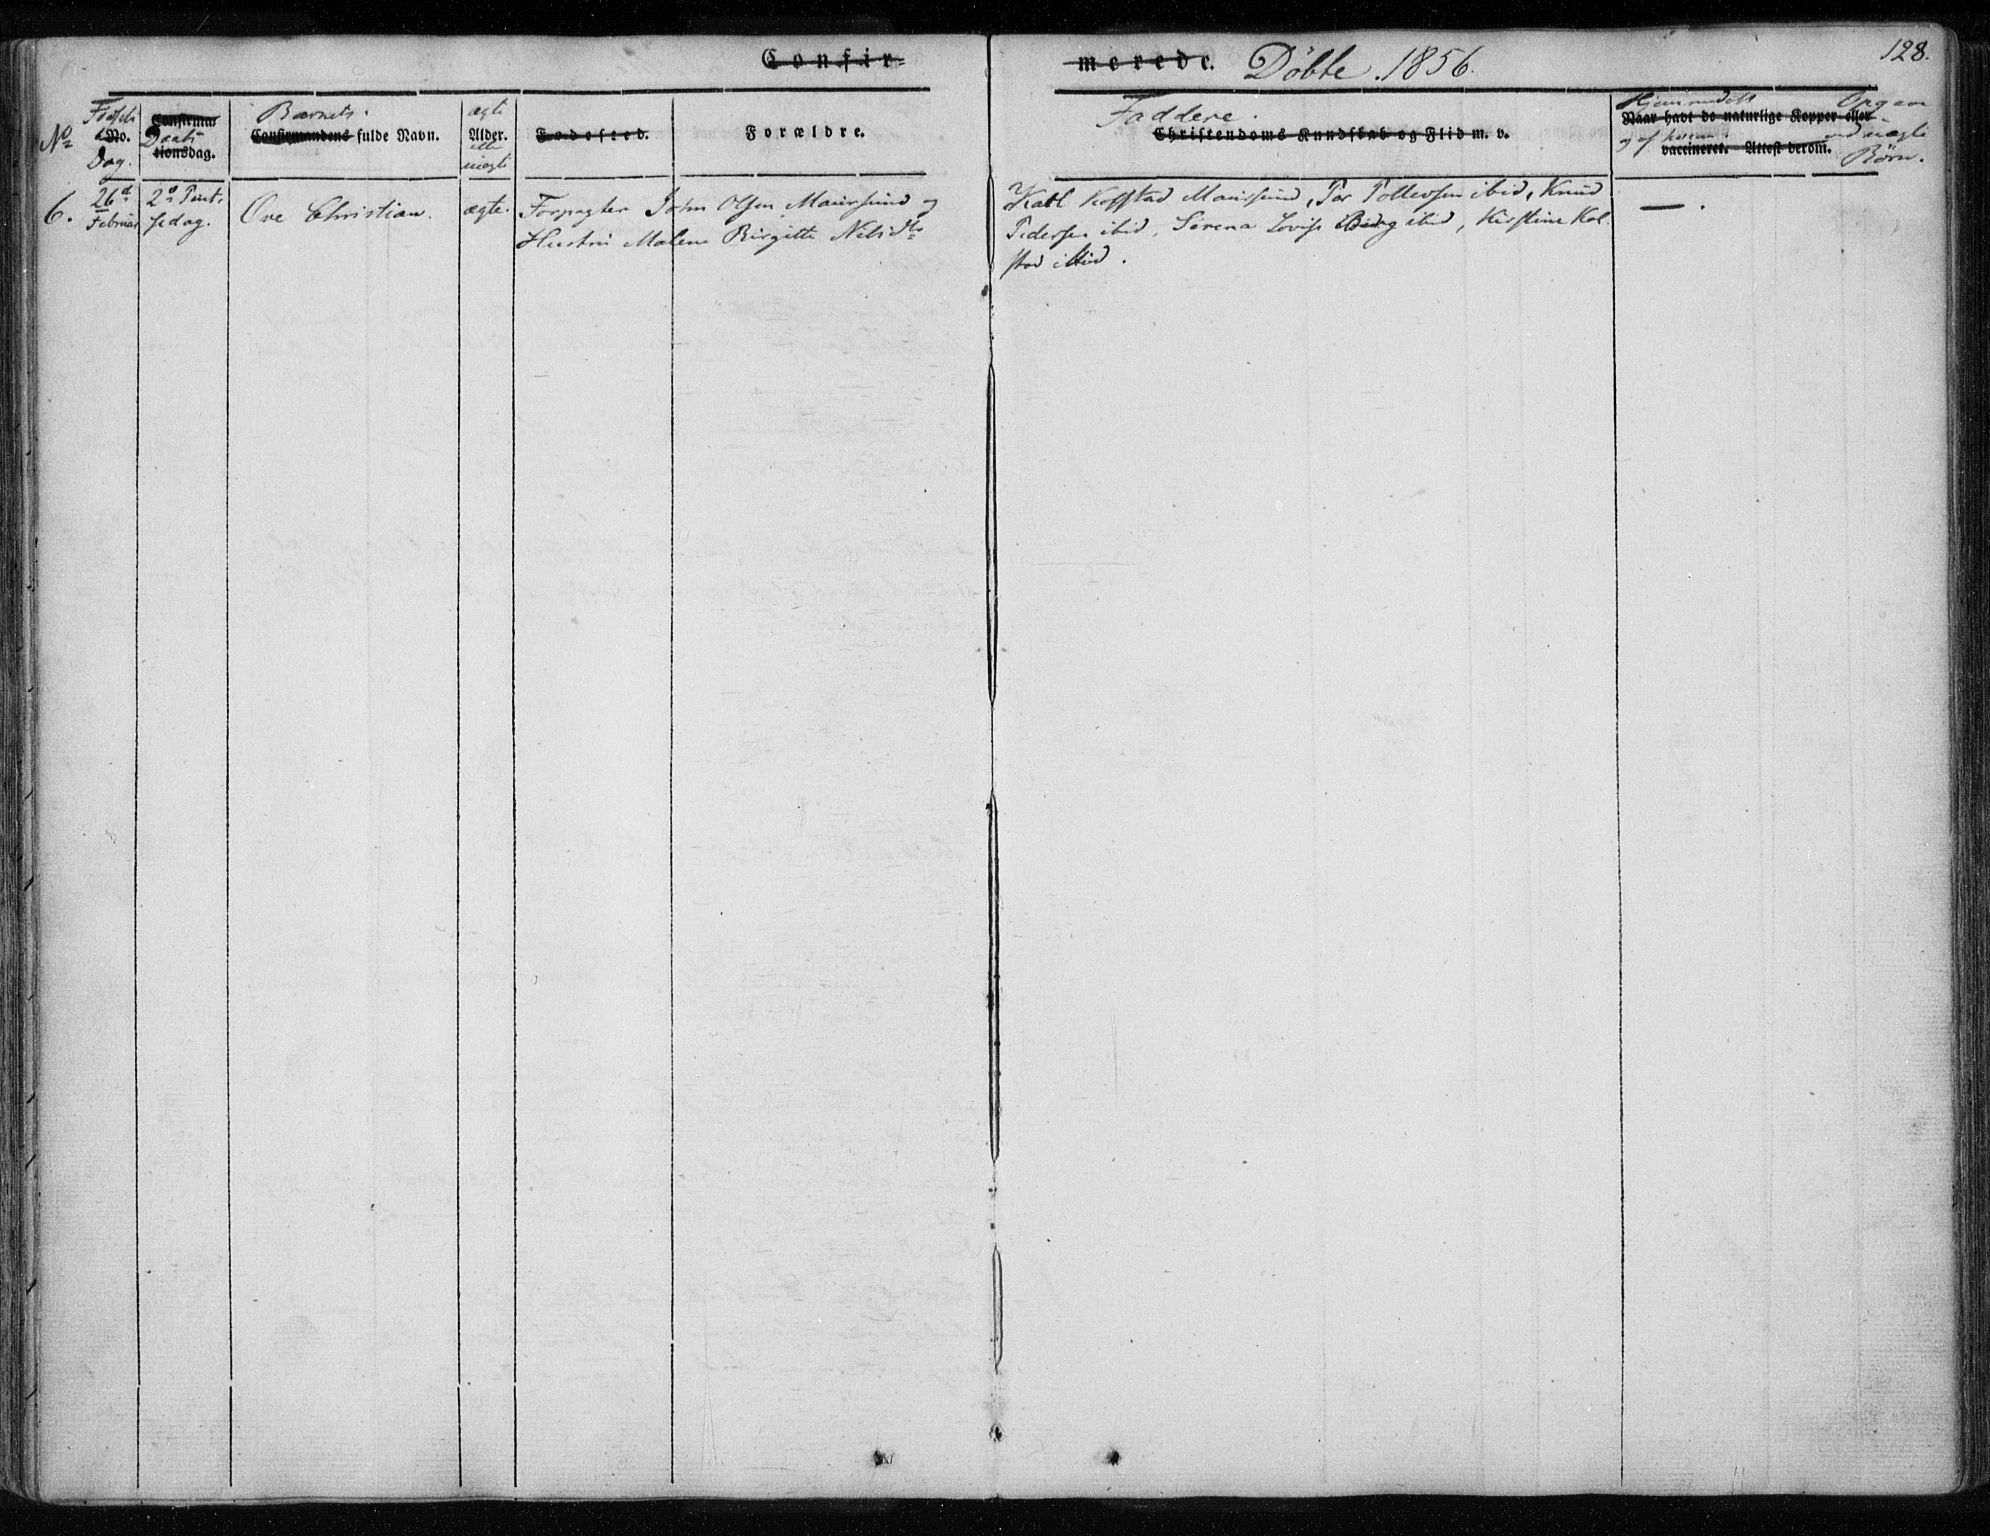 Confir=
merede. Döbte. 1856.
128.
No
Födsels
No.
Dag.
Confirma
Daabs
tionsdag.
Barnets.
Confirmandens fulde Navn.
ægte
Alder.
eller
uægte
Fødested.
Forældre.
Faddere.
Christendoms Kundskab og Flid m. v.
Hjemmedøbt
Naar havt de naturlige Kopper eller
og af hvem.
vaccineret. Attest derom.
ved uægte
Börn.
6.
26de
Februar
2den Pint-
sedag.
Ove Christian.
ægte.
Forpagter John Olsen Maursund og
Hustru Malene Birgitte Nilsdtr
Karl Koffstad Maursund, Per Tollevsen ibid, Knud
Pedersen ibid, Serena Lovise Berg ibid, Kirstine Kol-
stad ibid.
— .